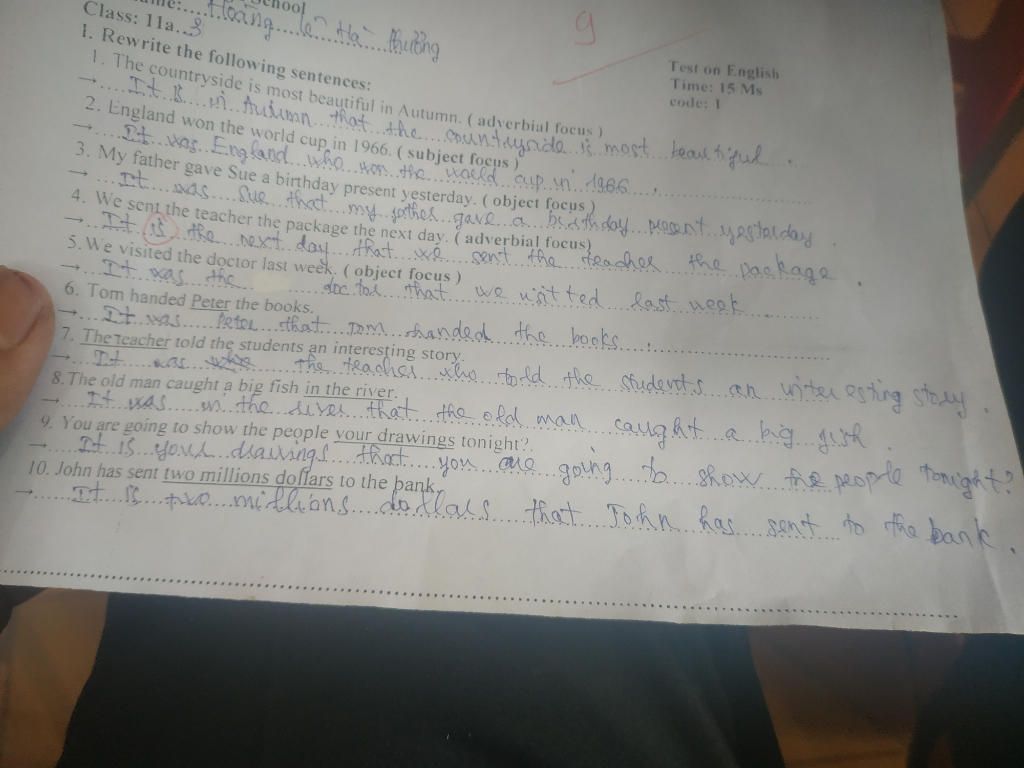 School
Hoàng Lê Hà Phương
Class: 11a.3
9
Test on English
Time: 15 Ms
code: 1
I. Rewrite the following sentences:
1. The countryside is most beautiful in Autumn. ( adverbial focus )
→ It is in Autumn that the countryside is most beautiful.
2. England won the world cup in 1966. ( subject focus )
→ It was England who won the world cup in 1966.
3. My father gave Sue a birthday present yesterday. ( object focus )
→ It was Sue that my father gave a birthday present yesterday.
4. We sent the teacher the package the next day. ( adverbial focus)
→ It is the next day that we sent the teacher the package.
5. We visited the doctor last week. ( object focus )
→ It was the doctor that we visited last week
6. Tom handed Peter the books.
→ It was Peter that Tom handed the books.
7. The teacher told the students an interesting story.
→ It was the teacher who told the students an interesting story.
8.The old man caught a big fish in the river.
→ It was in the river that the old man caught a big fish.
9. You are going to show the people your drawings tonight?
→ It is your drawings that you are going to show the people tonight?
10. John has sent two millions dollars to the bank.
→ It is two millions dollars that John has sent to the bank.